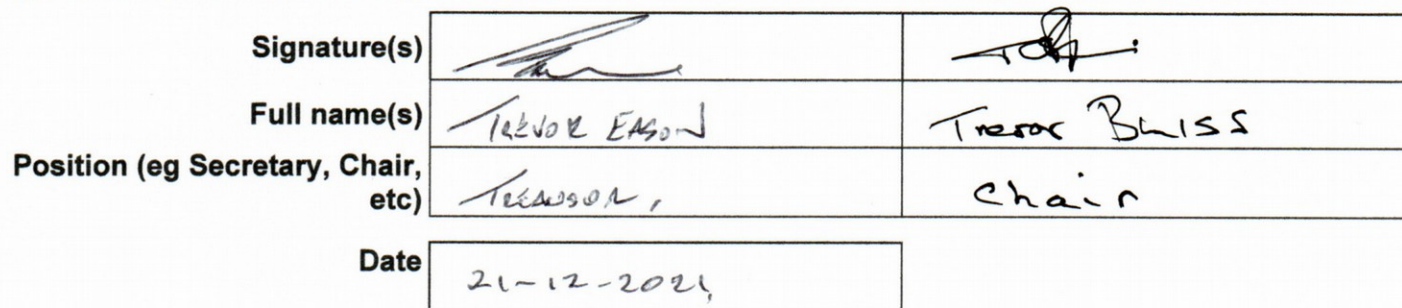 Signature(s)
Full name(s) TREVOR EASON Trevor BLISS
Position (eg Secretary, Chair,
etc) Chair
Date 21-12-2021